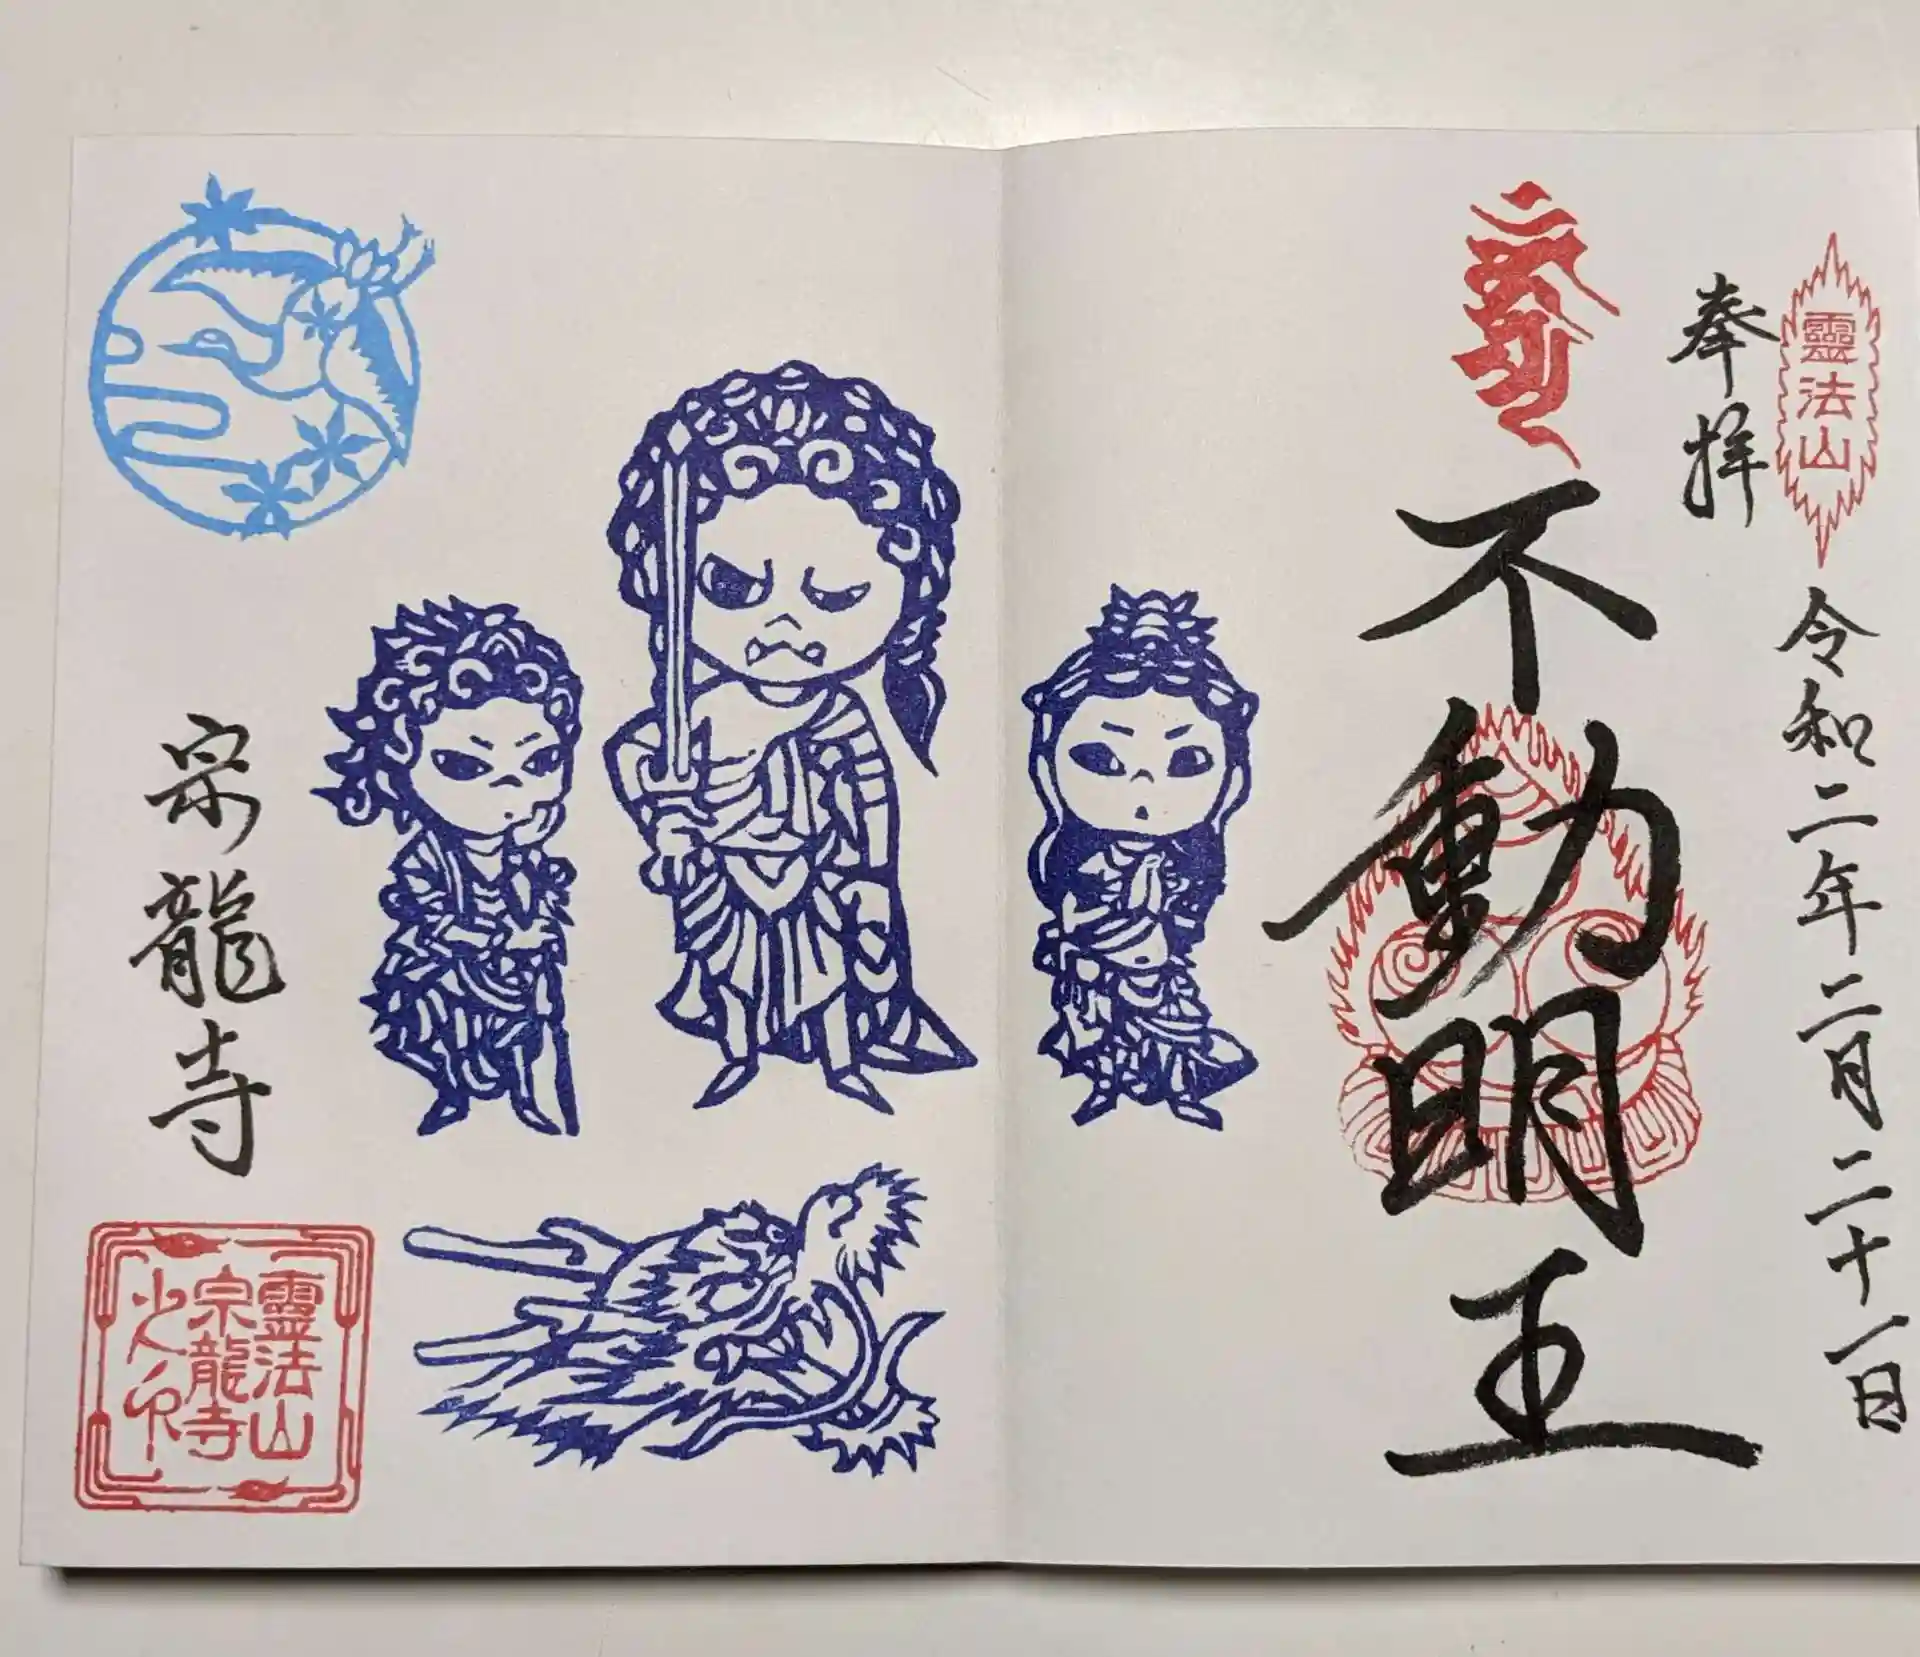 靈法山
奉拝
令和二年二月二十一日
不動明王
宗龍寺
靈法山
宗龍寺